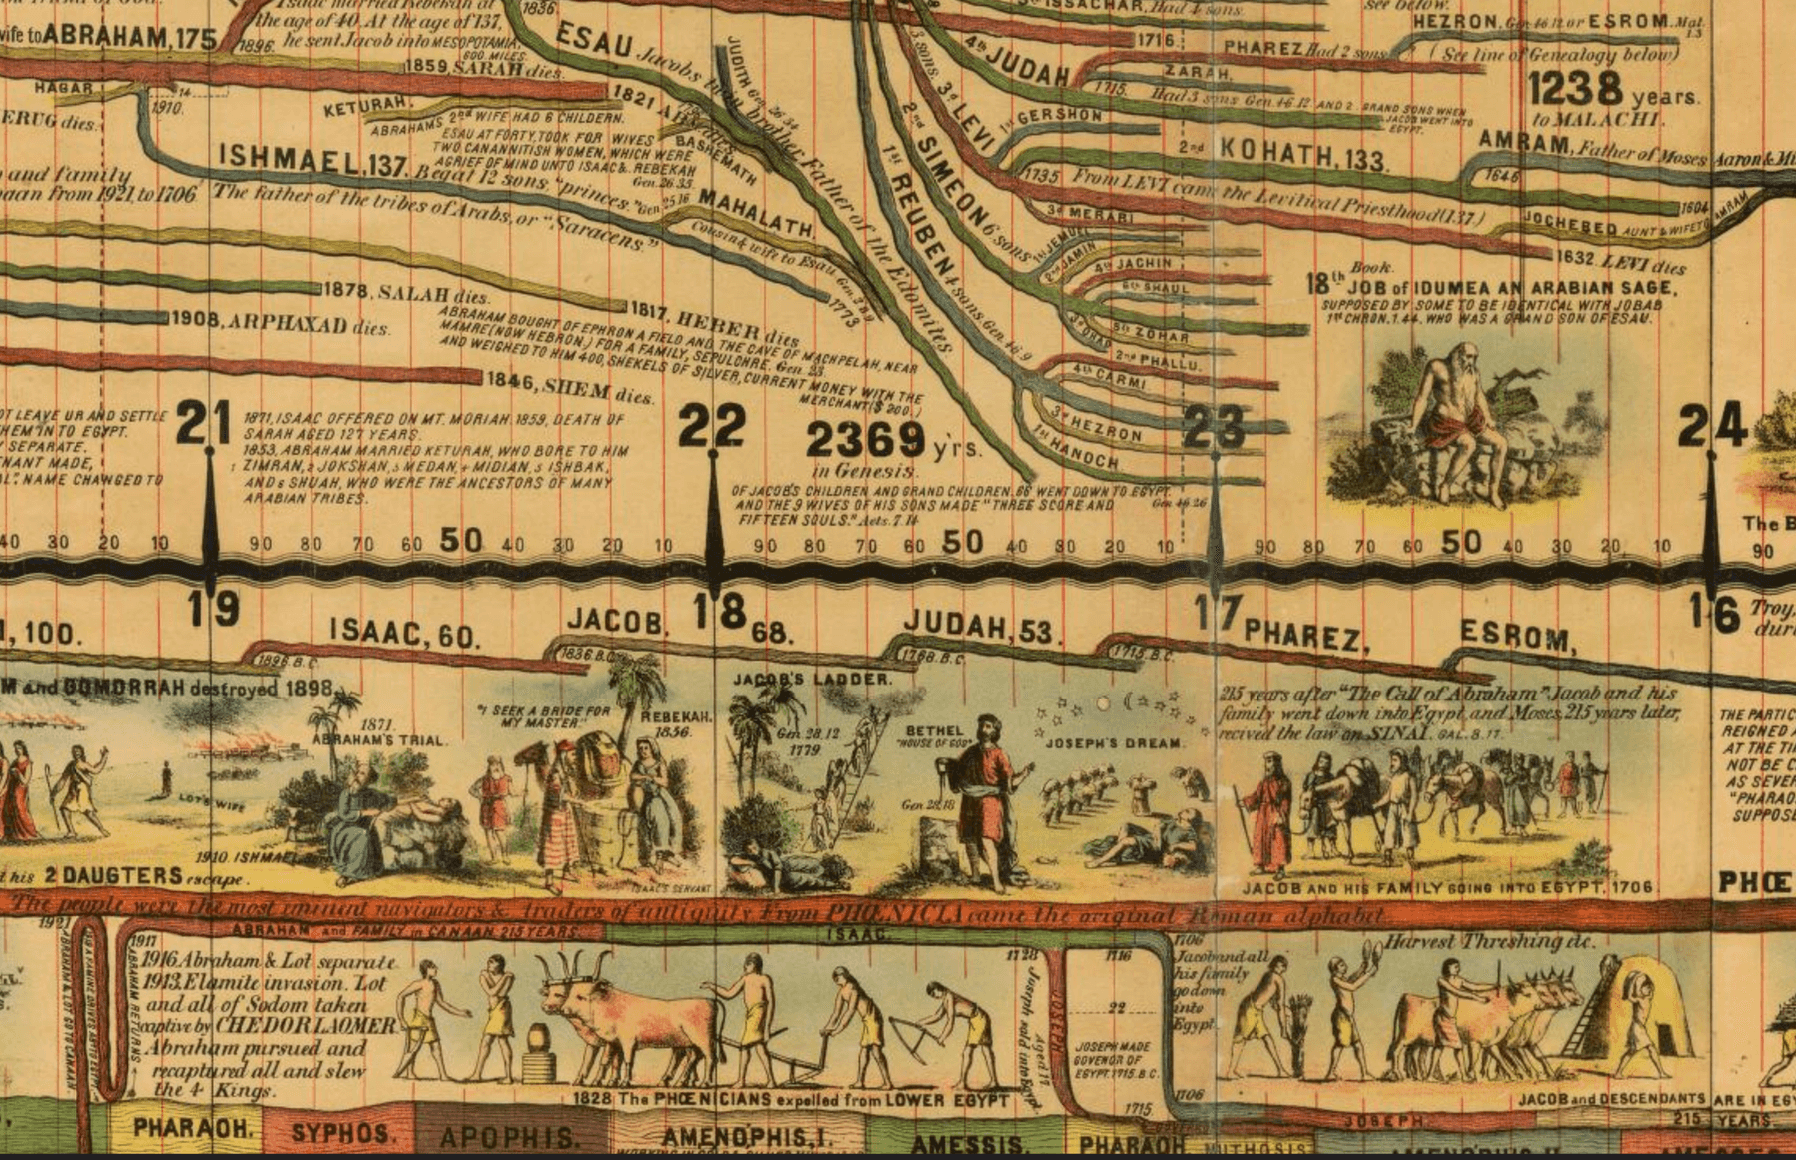 Isaac married Rebekah at
the age of 40. At the age of 137,
he sent Jacob into MESOPOTAMIA,
600 MILES.
1836.
1896.
wife to ABRAHAM, 175
1859, SARAH dies.
HAGAR
14
1910.
ERUG dies.
KETURAH.
ABRAHAMS 2nd WIFE HAD 6 CHILDERN.
ESAU AT FORTY, TOOK FOR WIVES
TWO CANANNITISH WOMEN, WHICH WERE
A GRIEF OF MIND UNTO ISAAC & REBEKAH
Gen. 26 35.
ESAU Jacobs twin brother Father of the Edomites
JUDITH Gen. 26 34
BASHEMATH
1821
ISHMAEL, 137. Begat 12 sons, "princes." Gen. 25 16
The father of the tribes of Arabs, or "Saracens."
and family
1921, to 1706
MAHALATH.
Cousin & wife to Esau
1773
1878, SALAH dies.
1817, HEBER dies
1908, ARPHAXAD dies.
ABRAHAM BOUGHT OF EPHRON A FIELD AND THE CAVE OF MACHPELAH, NEAR
MAMRE (NOW HEBRON,) FOR A FAMILY, SEPULCHRE. Gen 23.
AND WEIGHED TO HIM 400, SHEKELS OF SILVER, CURRENT MONEY WITH THE
MERCHANT ($ 200.)
1846, SHEM dies.
ISSACHAR, Had 4 sons.
see below.
HEZRON, Gen 46 12 or ESROM. Mat. 1.3
1716.
PHAREZ Had 2 sons
(See line of Genealogy below)
4th JUDAH
ZARAH.
1715.
Had 3 sons Gen. 46. 12 AND 2 GRAND SONS WHEN
JACOB WENT INTO
EGYPT.
1238 years.
to MALACHI.
3 sons.
3d LEVI
1st GERSHON
2nd KOHATH, 133.
AMRAM, Father of Moses Aaron &
1646
1735 From LEVI came the Levitical Priesthood (137.)
1604
AMRAM
3d MERARI
JOCHEBED AUNT & WIFE TO
1632. LEVI dies
2nd SIMEON 6 sons
1st JEMUEL
2nd JAMIN
4th JACHIN
6th SHAUL
5th ZOHAR
3d OHAD
1st REUBEN 4 sons Gen. 46 9
2nd PHALLU.
4th CARMI.
3d HEZRON
1st HANOCH
Book.
18th JOB of IDUMEA AN ARABIAN SAGE,
SUPPOSED BY SOME TO BE IDENTICAL WITH JOBAB
1st CHRON. 1. 44. WHO WAS A GRAND SON OF ESAU.
OT LEAVE UR AND SETTLE
THEM IN TO EGYPT.
SEPARATE.
NANT MADE,
NAME CHANGED TO
21
1871, ISAAC OFFERED ON MT. MORIAH. 1859, DEATH OF
SARAH AGED 127 YEARS.
1853, ABRAHAM MARRIED KETURAH, WHO BORE TO HIM
1 ZIMRAN, 2 JOKSHAN, 3 MEDAN, 4 MIDIAN, 5 ISHBAK,
AND 6 SHUAH, WHO WERE THE ANCESTORS OF MANY
ARABIAN TRIBES.
22
2369 yrs.
in Genesis.
OF JACOB'S CHILDREN AND GRAND CHILDREN, 66 WENT DOWN TO EGYPT.
Gen 46 26
AND THE 9 WIVES OF HIS SONS MADE "THREE SCORE AND
FIFTEEN SOULS." Acts. 7. 14
23
24
The B
40 30 20 10 90 80 70 60 50 40 30 20 10 90 80 70 60 50 40 30 20 10 90 80 70 60 50 40 30 20 10 90
19 18 17 16
, 100.
ISAAC, 60.
JACOB. 68.
JUDAH, 53.
PHAREZ,
ESROM,
Troy,
1896. B.C.
1836. B.C.
1768. B.C.
1715. B.C.
M and GOMORRAH destroyed 1898.
1871.
ABRAHAM'S TRIAL.
"I SEEK A BRIDE FOR
MY MASTER."
REBEKAH.
1856.
LOT'S WIFE
1910. ISHMAEL
ISAAC'S SERVANT
his 2 DAUGTERS escape.
JACOB'S LADDER.
Gen. 28. 12
1779
BETHEL
"HOUSE OF GOD"
Gen 28.18
JOSEPH'S DREAM.
215 years after "The Call of Abraham" Jacob and his
family went down into Egypt, and Moses 215 years later,
recived the law on SINAI. GAL. 3. 17.
JACOB AND HIS FAMILY GOING INTO EGYPT. 1706
THE PARTIC
REIGNED A
AT THE TI
NOT BE C
AS SEVER
"PHARAO
SUPPOSE
PHŒ
The people were the most eminent navigators & traders of antiquity From PHŒNICIA came the original Roman alphabet.
1921
ABRAHAM & LOT GO TO CANAAN
ABRAHAM RETURNS
ABRAHAM and FAMILY in CANAAN 215 YEARS.
ISAAC.
1917
1916. Abraham & Lot separate
1913. Elamite invasion. Lot
and all of Sodom taken
captive by CHEDORLAOMER
Abraham pursued and
recaptured all and slew
the 4 Kings.
1828 The PHŒNICIANS expelled from LOWER EGYPT
1728
Joseph sold into Egypt.
Aged 17
JOSEPH
1716
22
JOSEPH MADE
GOVENOR OF
EGYPT. 1715. B.C.
1715
1706
Jacob and all
his family
go down
into
Egypt.
1706
Harvest Threshing etc.
JACOB and DESCENDANTS ARE IN EGY
JOSEPH.
215 YEARS.
PHARAOH.
SYPHOS.
APOPHIS.
AMENOPHIS, I.
AMESSIS.
PHARAOH
MITHOSIS